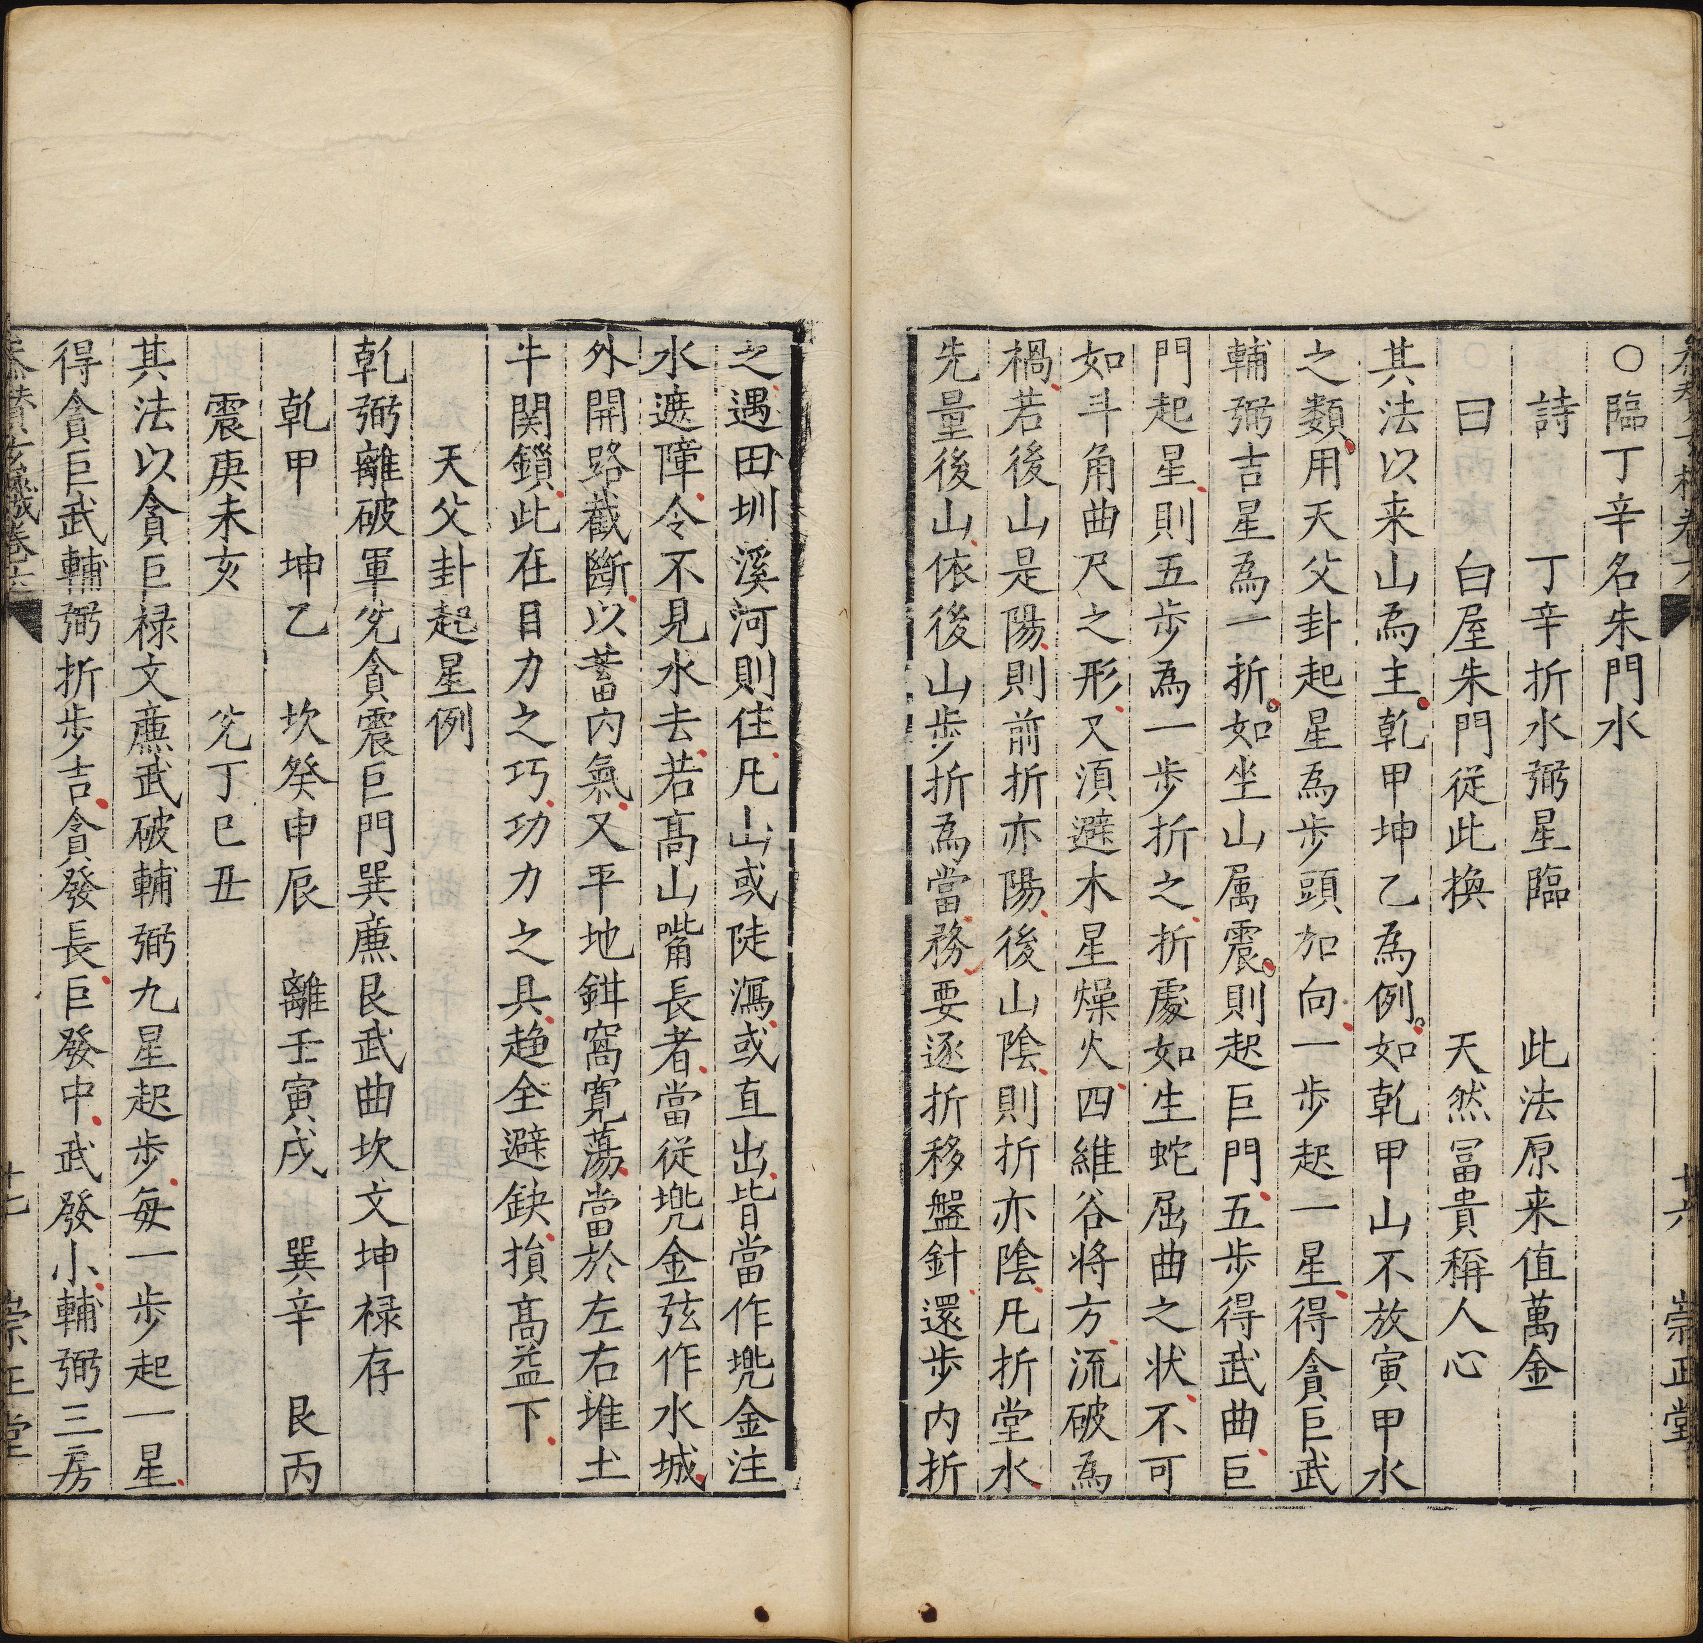 ○臨丁辛名朱門水
詩　丁辛折水弼星臨　此法原来值萬金
曰　白屋朱門従此換　天然冨貴稱人心
其法以来山為主乾甲坤乙為例如乾甲山不放寅甲水
之類用天父卦起星為步頭加向一步起一星得貪巨武
輔弼吉星為一折如坐山属震則起巨門五步得武曲巨
門起星則五步為一步折之折處如生蛇屈曲之状不可
如斗角曲尺之形又須避木星燥火四維谷將方流破為
禍若後山是陽則前折亦陽後山陰則折亦陰凡折堂水
先量後山依後山步折為當務要逐折移盤針還步内折
廿六　崇正堂
之遇田圳溪河則住凡山或陡瀉或直出皆當作兠金注
水遮障令不見水去若髙山嘴長者當従兠金弦作水城
外開路截斷以蓄内氣又平地鉗窩寛蕩當於左右堆土
牛関鎖此在目力之巧功力之具趋全避缺損髙益下
天父卦起星例
乾弼離破軍兊貪震巨門巽亷艮武曲坎文坤禄存
乾甲　坤乙　坎癸申辰　離壬寅戌　巽辛　艮丙
震庚未亥　兊丁巳丑
其法以貪巨禄文亷武破輔弼九星起步每一步起一星
得貪巨武輔弼折步吉貪發長巨發中武發小輔弼三房
廿七　崇正堂